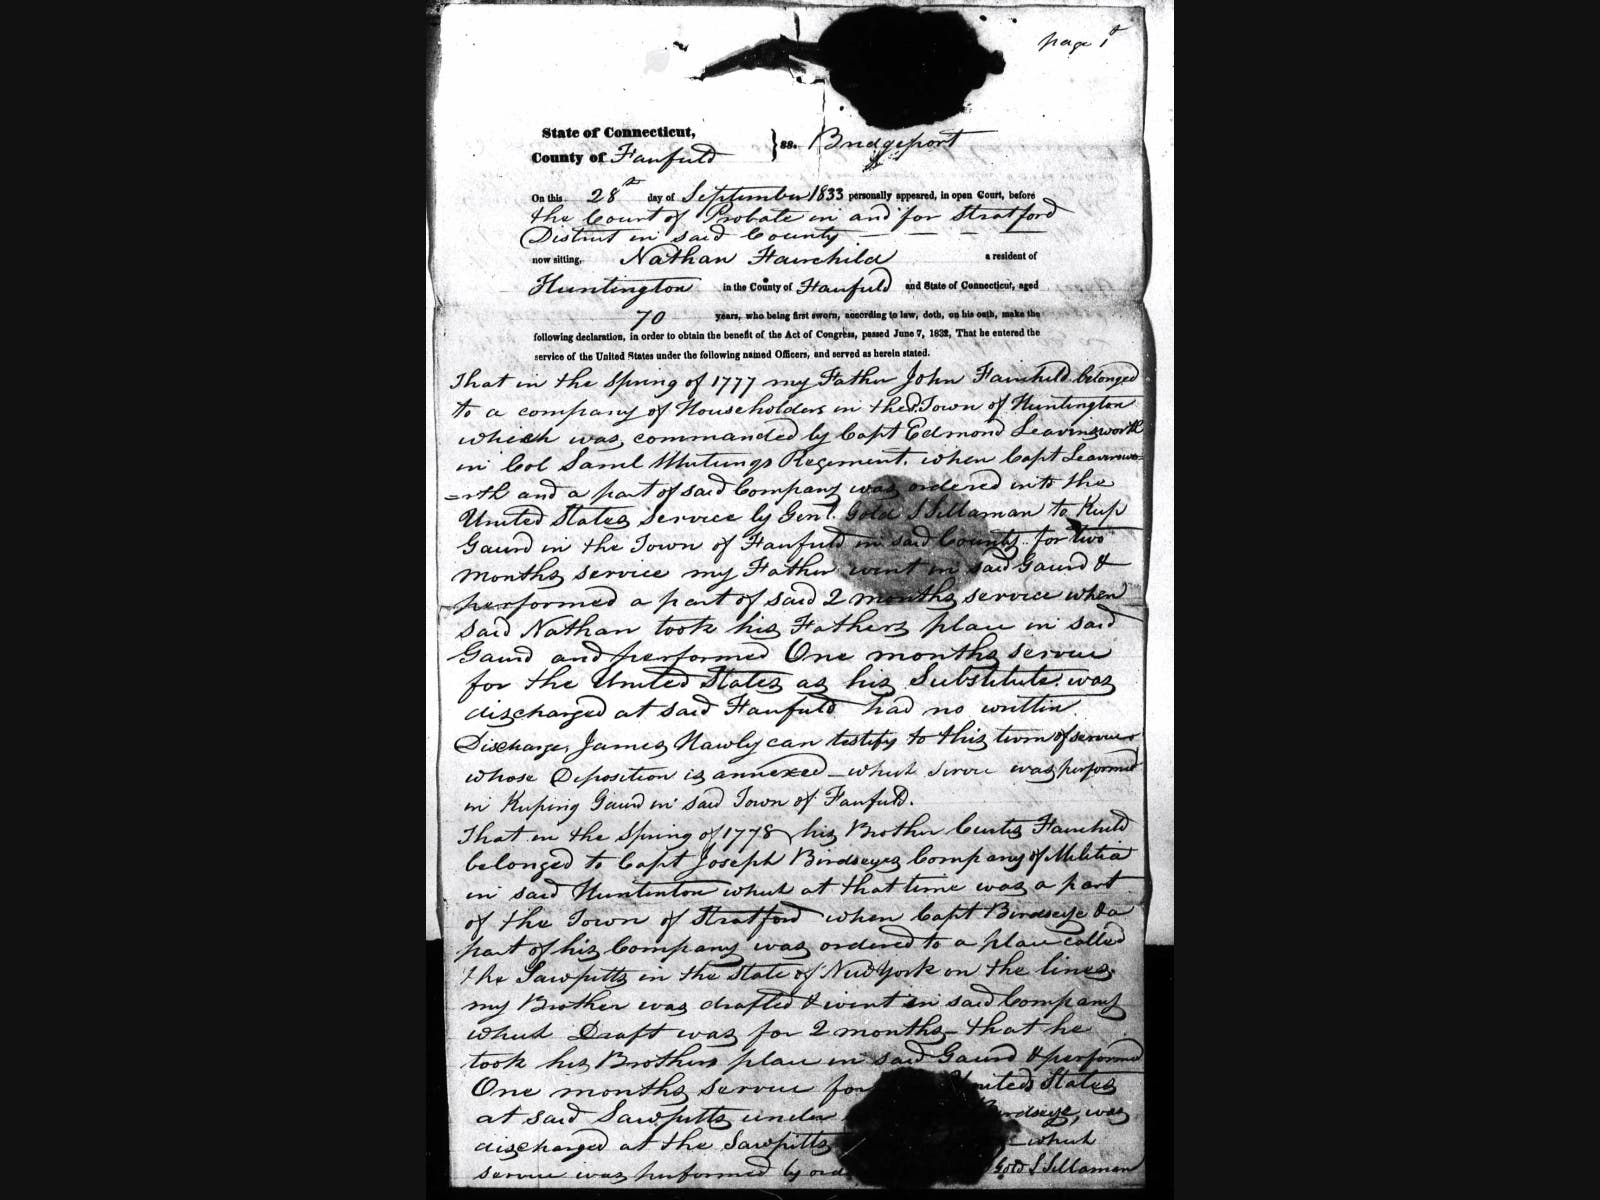 page 1st
State of Connecticut,
County of Fairfield } ss. Bridgeport
On this 28th day of September 1833 personally appeared, in open Court, before
the Court of Probate in and for Stratford
District in said County
now sitting, Nathan Fairchild a resident of
Huntington in the County of Fairfield and State of Connecticut, aged
70 years, who being first sworn, according to law, doth, on his oath, make the
following declaration, in order to obtain the benefit of the Act of Congress, passed June 7, 1832, That he entered the
service of the United States under the following named Officers, and served as herein stated.
That in the Spring of 1777 my Father John Fairchild belonged
to a company of Householders in the Town of Huntington
which was commanded by Capt Edmond Leavinsworth
in Col Saml Whitings Regiment, when Capt Leavinswo=
=rth and a part of said Company was ordered into the
United States service by Genl. Gold S Sillaman to Keep
Gaurd in the Town of Fairfield in said County for two
months service my Father went in said Gaurd &
performed a part of said 2 months service when
said Nathan took his Fathers place in said
Gaurd and performed One months service
for the United States as his Substitute. was
discharged at said Fairfield had no written
Discharge, James Hawly can testify to this term of service
whose Deposition is annexed – which servic was performed
in Keeping Gaurd in said Town of Fairfield.
That in the Spring of 1778 his Brother Curtis Fairchild
belonged to Capt Joseph Birdseyes Company of Militia
in said Huntinton which at that time was a part
of the Town of Stratford when Capt Birdseye & a
part of his Company was ordered to a place called
the Sawpitts in the State of New York on the lines.
my Brother was drafted & went in said Company
which Draft was for 2 months – that he
took his Brothers place in said Gaurd & performed
One months service for United States
at said Sawpitts under Birdseye, was
discharged at the Sawpitts – which
service was performed by Gold S Sillaman